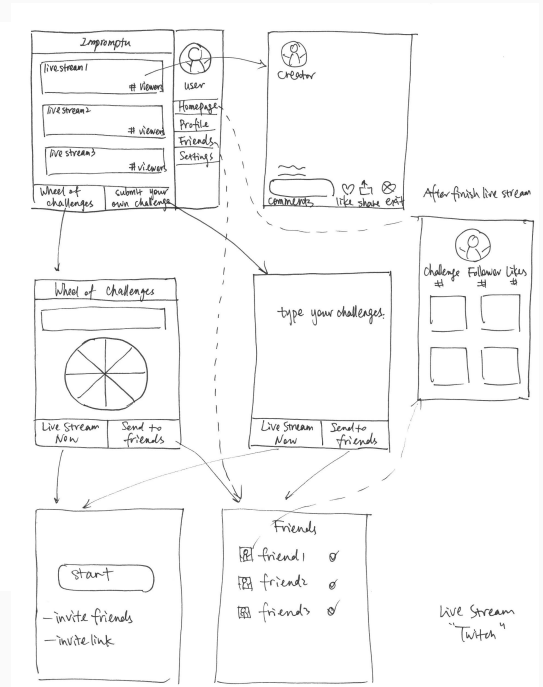 Impromptu
live stream 1
# viewers
live stream 2
# viewers
live stream 3
# viewers
Wheel of
challenges
submit your
own challenge
user
Homepage
Profile
Friends
Settings
creator
comments
like share exit
After finish live stream
Challenge Follower Likes
# # #
Wheel of Challenges
Live Stream
Now
Send to
friends
type your challenges.
Live Stream
Now
Send to
friends
start
- invite friends
- invite link
Friends
friend 1
friend 2
friend 3
Live Stream
"Twitch"